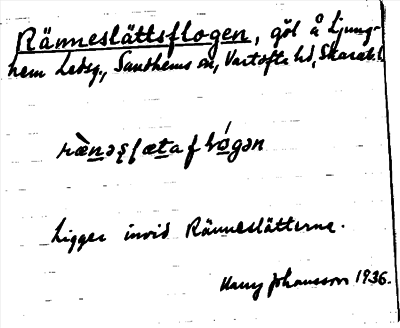 Ränneslättsflogen, göl å Ljung-
hem Ledsg., Sandhems sn, Vartofta hd, Skarab. l.
Ligger invid Ränneslätterna.
Harry Johansson 1936.